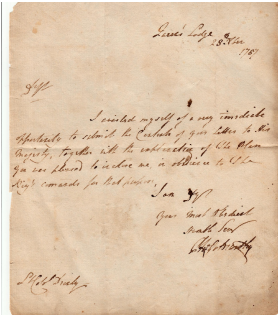 Lodge
28 Nov
1787
Sir
I availed myself of a very immediate
opportunity to submit the Contents of your Letter to His
Majesty, together with the explanation of the Plan
You was pleased to inclose me, in obedience to The
King's commands for that purpose.
I am Sir
Your most Obedient
Humble Serv